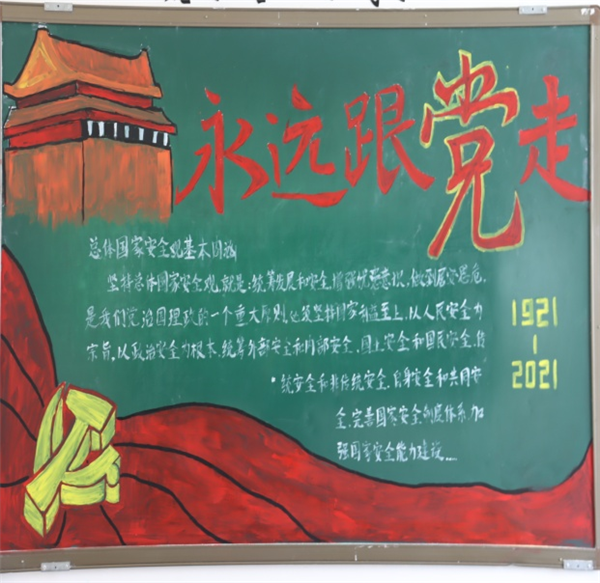 永远跟党走
总体国家安全观基本内涵
坚持总体国家安全观,就是:统筹发展和安全,增强忧患意识,做到居安思危,
是我们党治国理政的一个重大原则。必须坚持国家利益至上,以人民安全为
宗旨,以政治安全为根本,统筹外部安全和内部安全、国土安全和国民安全、传
统安全和非传统安全、自身安全和共同安
全,完善国家安全制度体系,加
强国家安全能力建设……
1921
-
2021